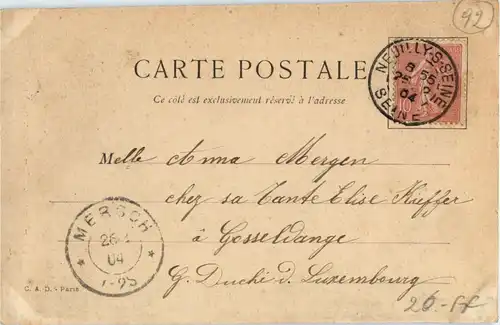 92
CARTE POSTALE
Ce côté est exclusivement réservé à l'adresse
NEUILLY-S-SEINE
8 55
25 2
04
SEINE
10
Melle Anna Mergen
chez sa Tante Elise Kieffer
à Gosseldange
G. Duché d. Luxembourg
MERSCH
26
04
7-9S
C. A. D. - Paris